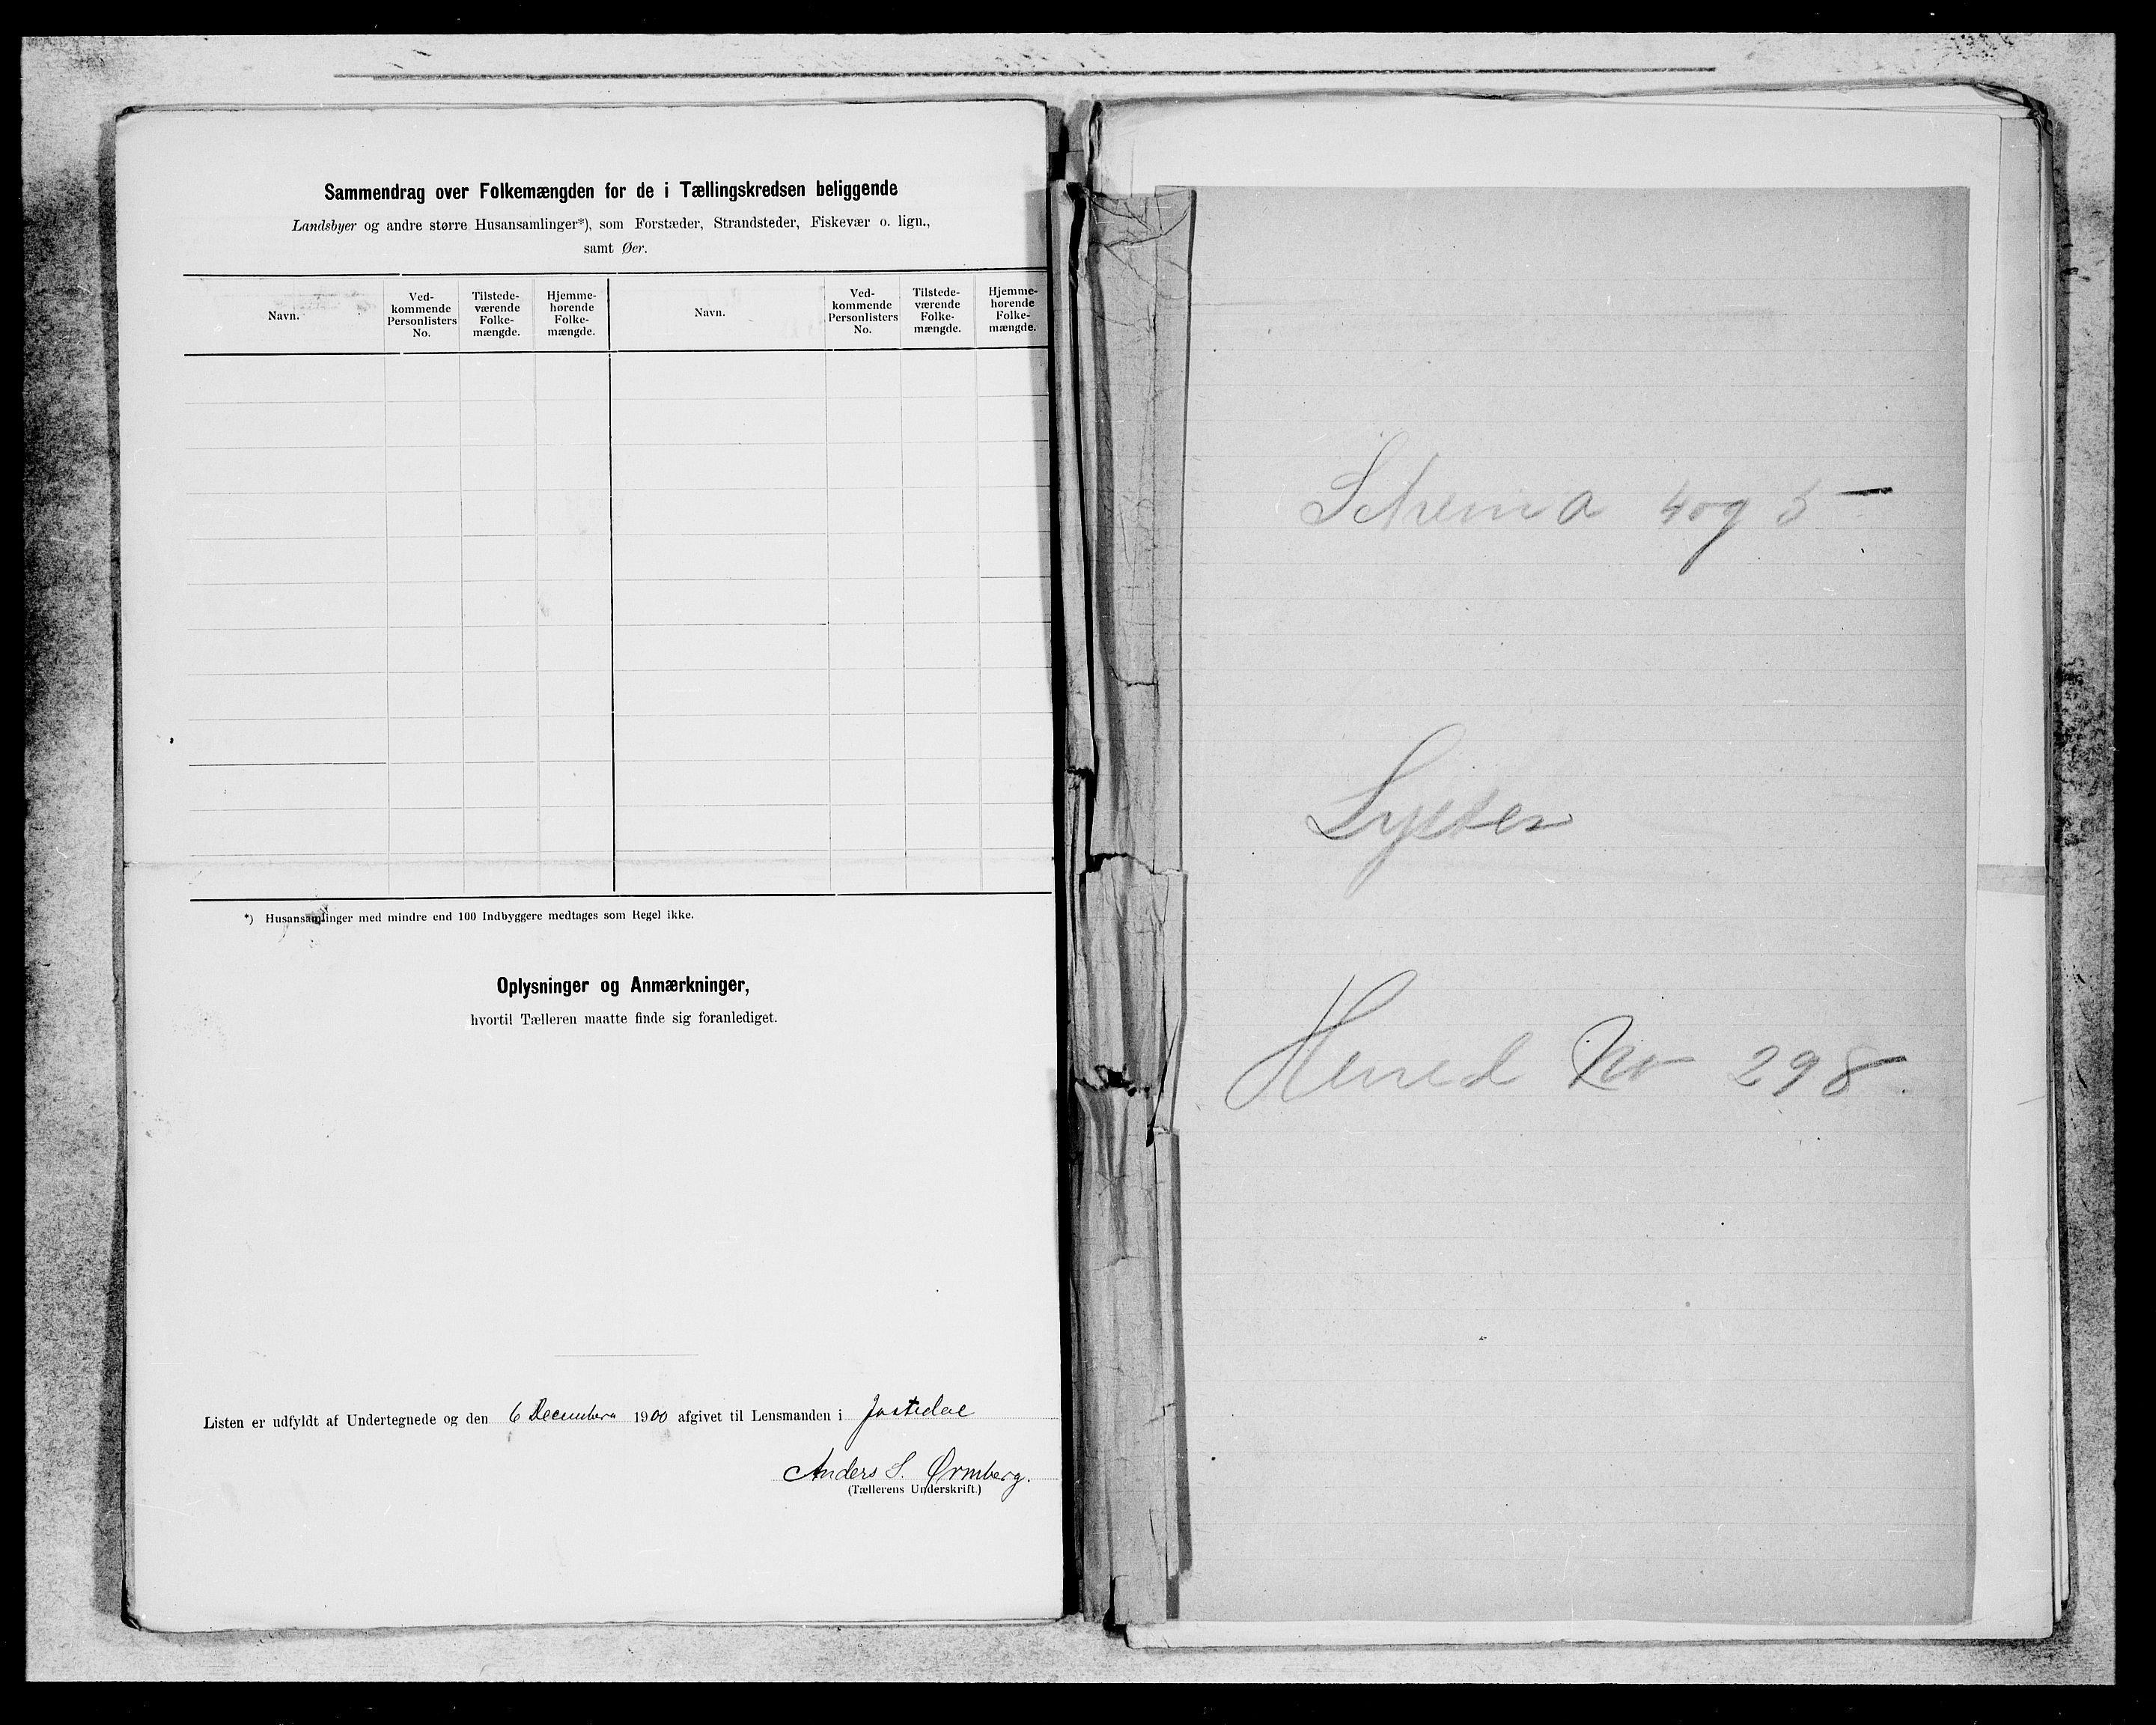 Sammendrag over Folkemængden for de i Tællingskredsen beliggende
Landsbyer og andre større Husansamlinger*), som Forstæder, Strandsteder, Fiskevær o. lign.,
samt Øer.
Navn.
Ved-
kommende
Personlisters
No.
Tilstede-
værende
Folke-
mængde.
Hjemme-
hørende
Folke-
mængde.
Navn.
Ved-
kommende
Personlisters
No.
Tilstede-
værende
Folke-
mængde.
Hjemme-
hørende
Folke-
mængde.
*) Husansamlinger med mindre end 100 Indbyggere medtages som Regel ikke.
Oplysninger og Anmærkninger,
hvortil Tælleren maatte finde sig foranlediget.
Listen er udfyldt af Undertegnede og den 6 Decembern 1900 afgivet til Lensmanden i Jostedal
Anders S. Ørmberg.
(Tællerens Underskrift.)
Schema 4 og 5
Lyster
Herred No 298.